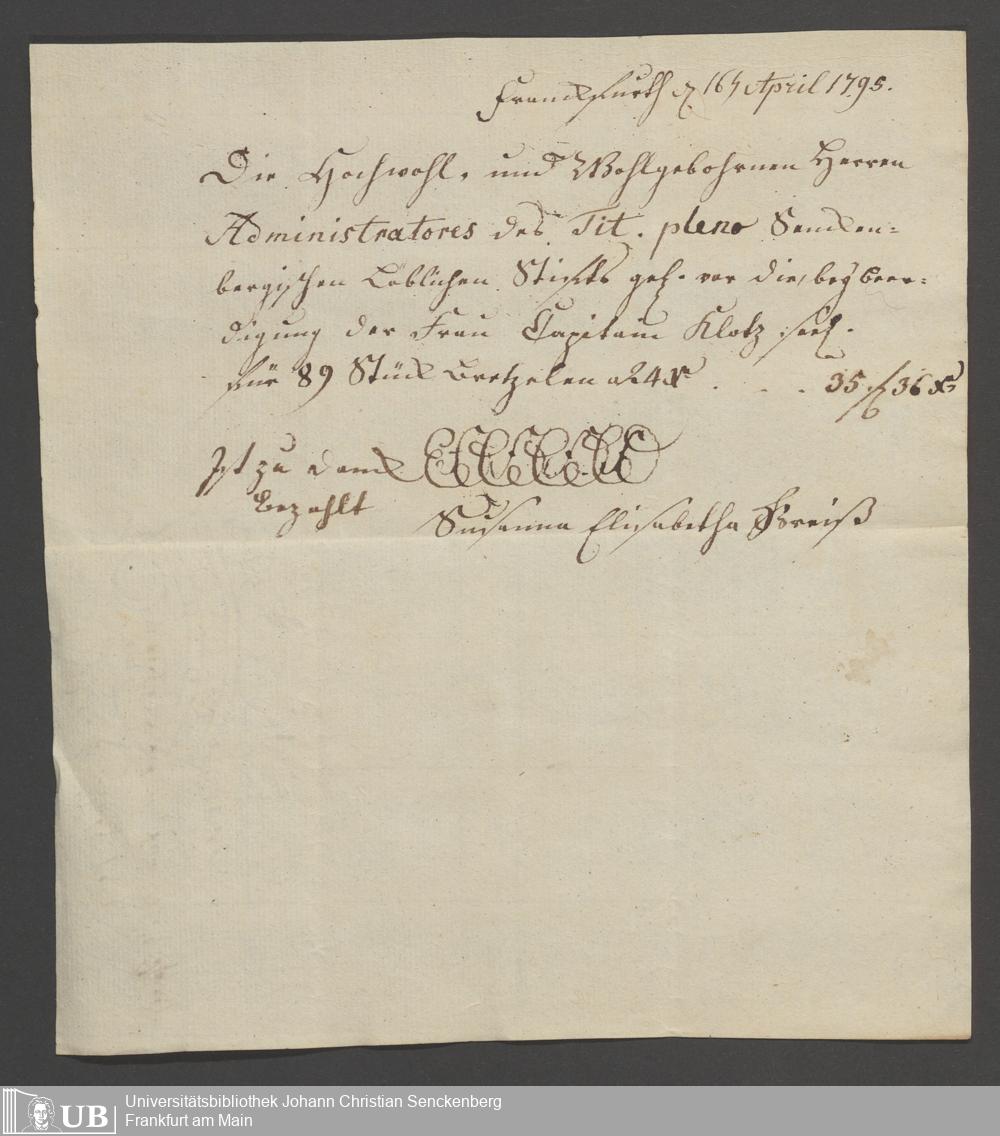 Franckfurth d 16t April 1795.
Die Hochwohl, und Wohlgebohrnen Herren
Administratores des Tit. pleno Sencken=
bergischen Löblichen Stiffts gel. vor die, bey beer=
digung der Frau Capitain Klotz seel.
für 89 Stück Bretzelen a 24 x . . . 35 f 36 x
Ist zu danck
bezahlt
Susanna Elisabetha Preiß
UB
Universitätsbibliothek Johann Christian Senckenberg
Frankfurt am Main